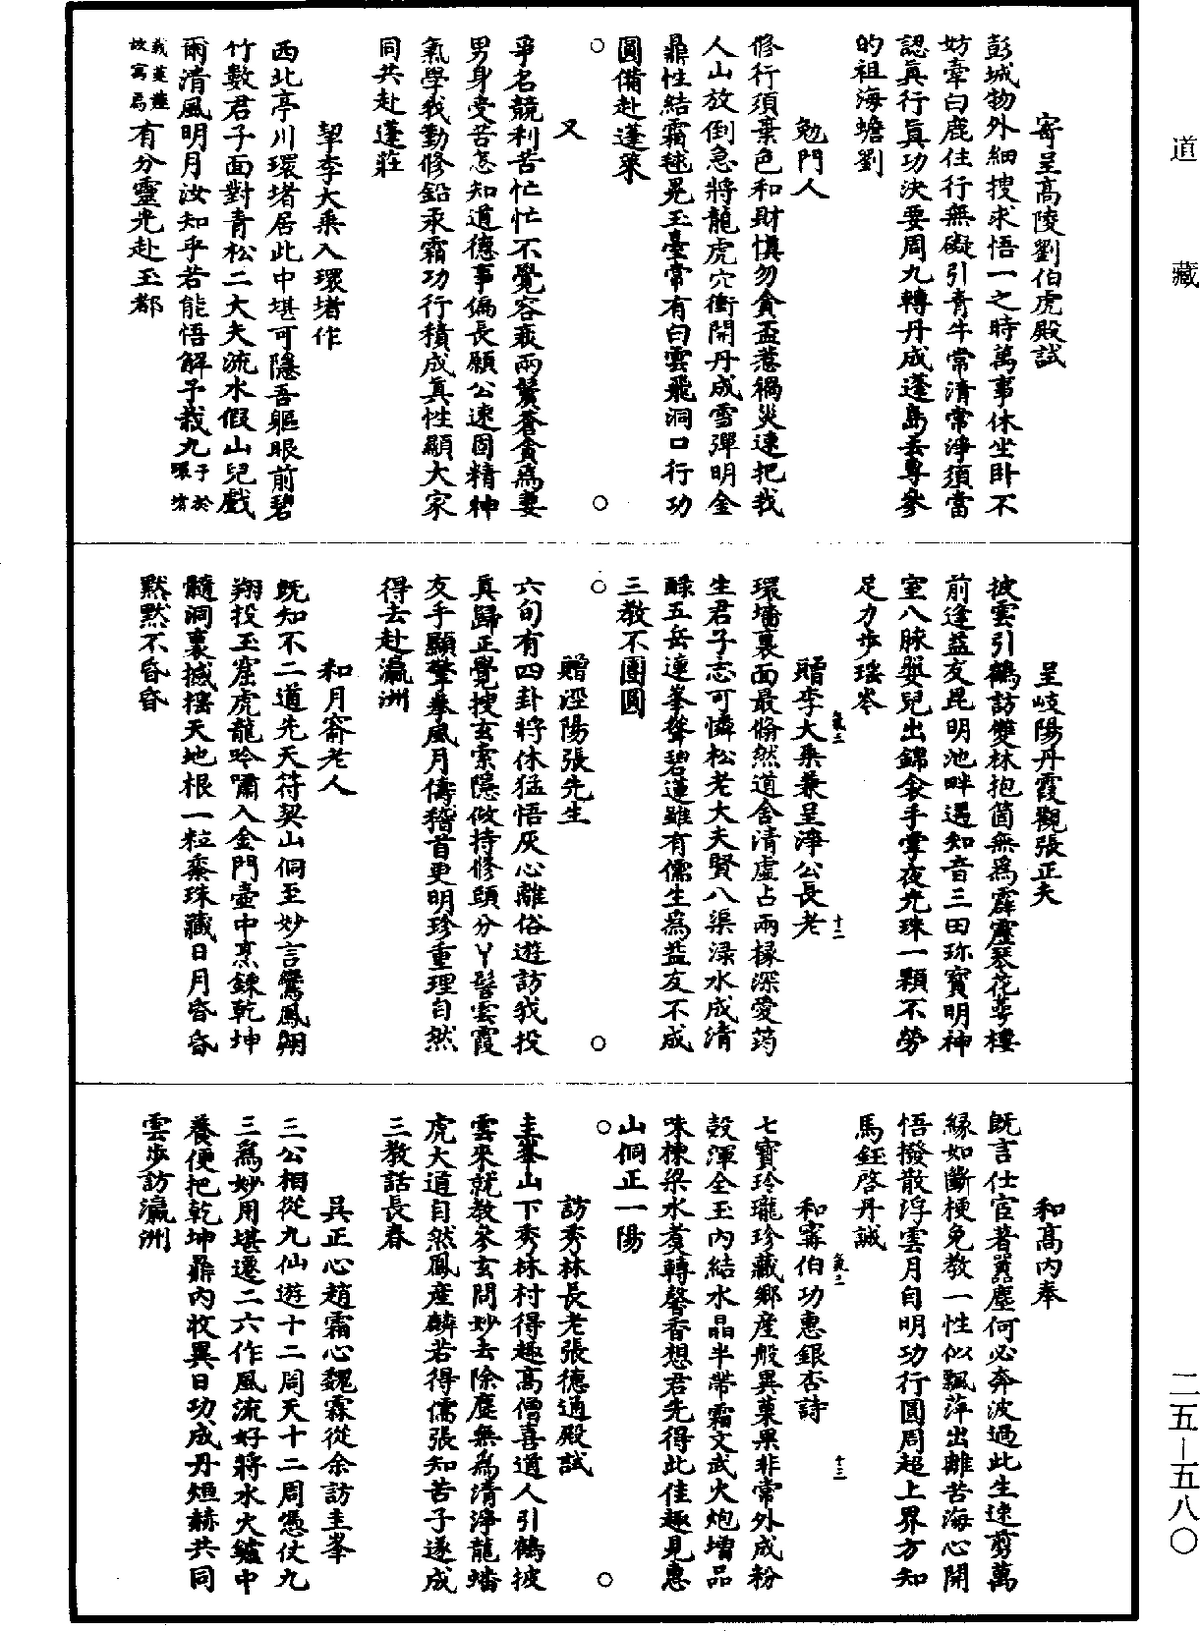 道藏
寄呈高陵劉伯虎殿試
彭城物外細搜求悟一之時萬事休坐卧不
妨牽白鹿住行無礙引青牛常清常淨須當
認真行真功决要周九轉丹成蓬島去專參
的祖海蟾劉
勉門人
修行須棄色和財慎勿貪盃惹禍災速把我
人山放倒急將龍虎穴衝開丹成雪彈明金
鼎性結霜毬晃玉臺常有白雲飛洞口行功
圓備赴蓬萊
又
爭名競利苦忙忙不覺容衰兩鬢蒼貪爲妻
男身受苦怎知道德事偏長願公速固精神
氣學我勤修鉛汞霜功行積成真性顯大家
同共赴蓬莊
挈李大乘入環堵作
西北亭川環堵居此中堪可隱吾軀眼前碧
竹數君子面對青松二大夫流水假山兒戲
爾清風明月汝知乎若能悟解予栽九予於環堵
栽蓮故寓焉有分靈光赴玉都
呈岐陽丹霞觀張正夫
披雲引鶴訪雙林抱箇無爲霹靂琴花萼樓
前逢益友昆明池畔遇知音三田珎寶明神
室八脉嬰兒出錦衾手掌夜光珠一顆不勞
足力步瑤岑
贈李大乘兼呈淨公長老
環墻裏面最翛然道舍清虛占兩椽深愛筠
生君子志可憐松老大夫賢八渠渌水成清
醁五岳連峯聳碧蓮雖有儒生爲益友不成
三教不團圓
贈涇陽張先生
六旬有四卦將休猛悟灰心離俗遊訪我投
真歸正覺搜玄索隱做持修頭分丫髻雲霞
友手顯擎拳風月儔稽首更明珍重理自然
得去赴瀛洲
和月齋老人
既知不二道先天符契山侗至妙言鸞鳳翱
翔投玉窟虎龍吟嘯入金門壺中烹鍊乾坤
髓洞裏撼搖天地根一粒黍珠藏日月昏昏
默默不昏昏
和高内奉
既言仕宦著囂塵何必奔波過此生速剪萬
緣如斷梗免教一性似飄萍出離苦海心開
悟撥散浮雲月自明功行圓周超上界方知
馬鈺啓丹誠
和甯伯功惠銀杏詩
七寶玲瓏珍藏鄉産般異菓果非常外成粉
殼渾全玉内結水晶半帶霜文武火炮增品
味棟梁水煑轉馨香想君先得此佳趣見惠
山侗正一陽
訪秀林長老張德通殿試
圭峯山下秀林村得趣高僧喜道人引鶴披
雲來就教參玄問妙去除塵無爲清淨龍蟠
虎大道自然鳳産麟若得儒張知苦子遂成
三教話長春
吴正心趙霜心魏霖從余訪圭峯
三公相從九仙遊十二周天十二周憑仗九
三爲妙用堪遷二六作風流好將水火鑪中
養便把乾坤鼎内收異日功成丹烜赫共同
雲步訪瀛洲
二五—五八〇